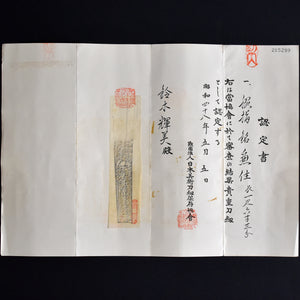 認定書
一、脇指 銘 兼住 長 一尺六寸三分
右は當協會に於て審査の結果貴重刀劔
として認定する
昭和四十八年五月五日
財團法人日本美術刀劍保存協會
鈴木輝美殿